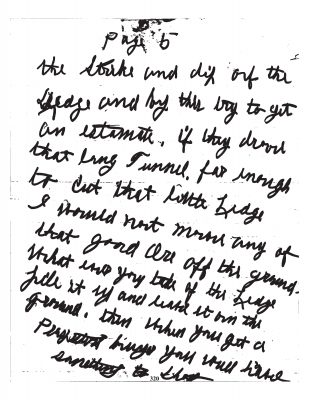 page 5
the Strike and dip of the
Ledge and by this try to get
an estimate, if they drove
that long Tunnel, far enough
to cut that little Ledge
I would not move any of
that good Ore off the ground.
What ever you take of the Ledge
pile it up and leave it on the
ground, then when you get a
buyer you will have
something to show
320